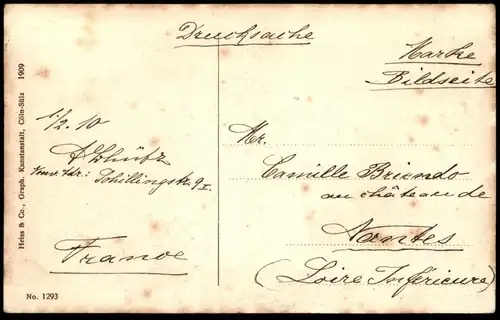 Drucksache
Marke
Bildseite
Heiss & Co., Graph. Kunstanstalt, Cöln-Sülz 1909
1/2.10
Schillingstr. 9 I
France
Mr.
Camille Briendo
au château de
Nantes
(Loire Inférieure)
No. 1293